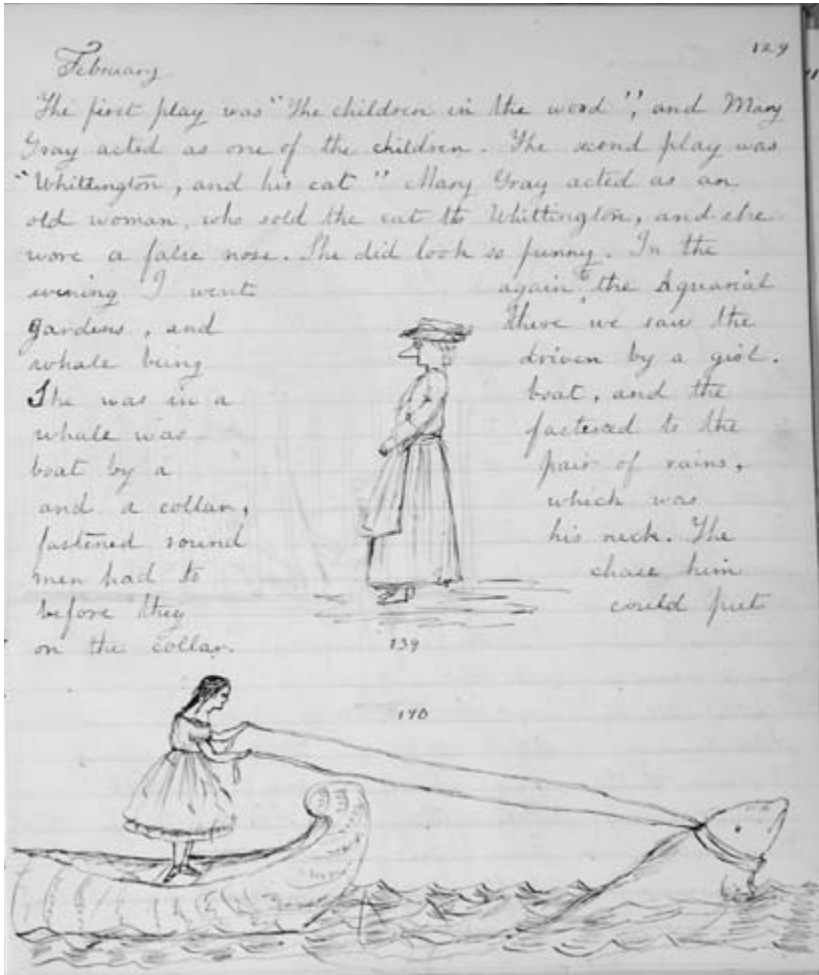 129
February
The first play was "The children in the wood", and Mary
Gray acted as one of the children. The second play was
"Whittington, and his cat" Mary Gray acted as an
old woman, who sold the cat to Whittington, and she
wore a false nose. She did look so funny. In the
evening I went again to the Aquarial
Gardens, and there we saw the
whale being driven by a girl.
She was in a boat, and the
whale was fastened to the
boat by a pair of rains,
and a collar, which was
fastened round his neck. The
men had to chase him
before they could put
on the collar.
139
140